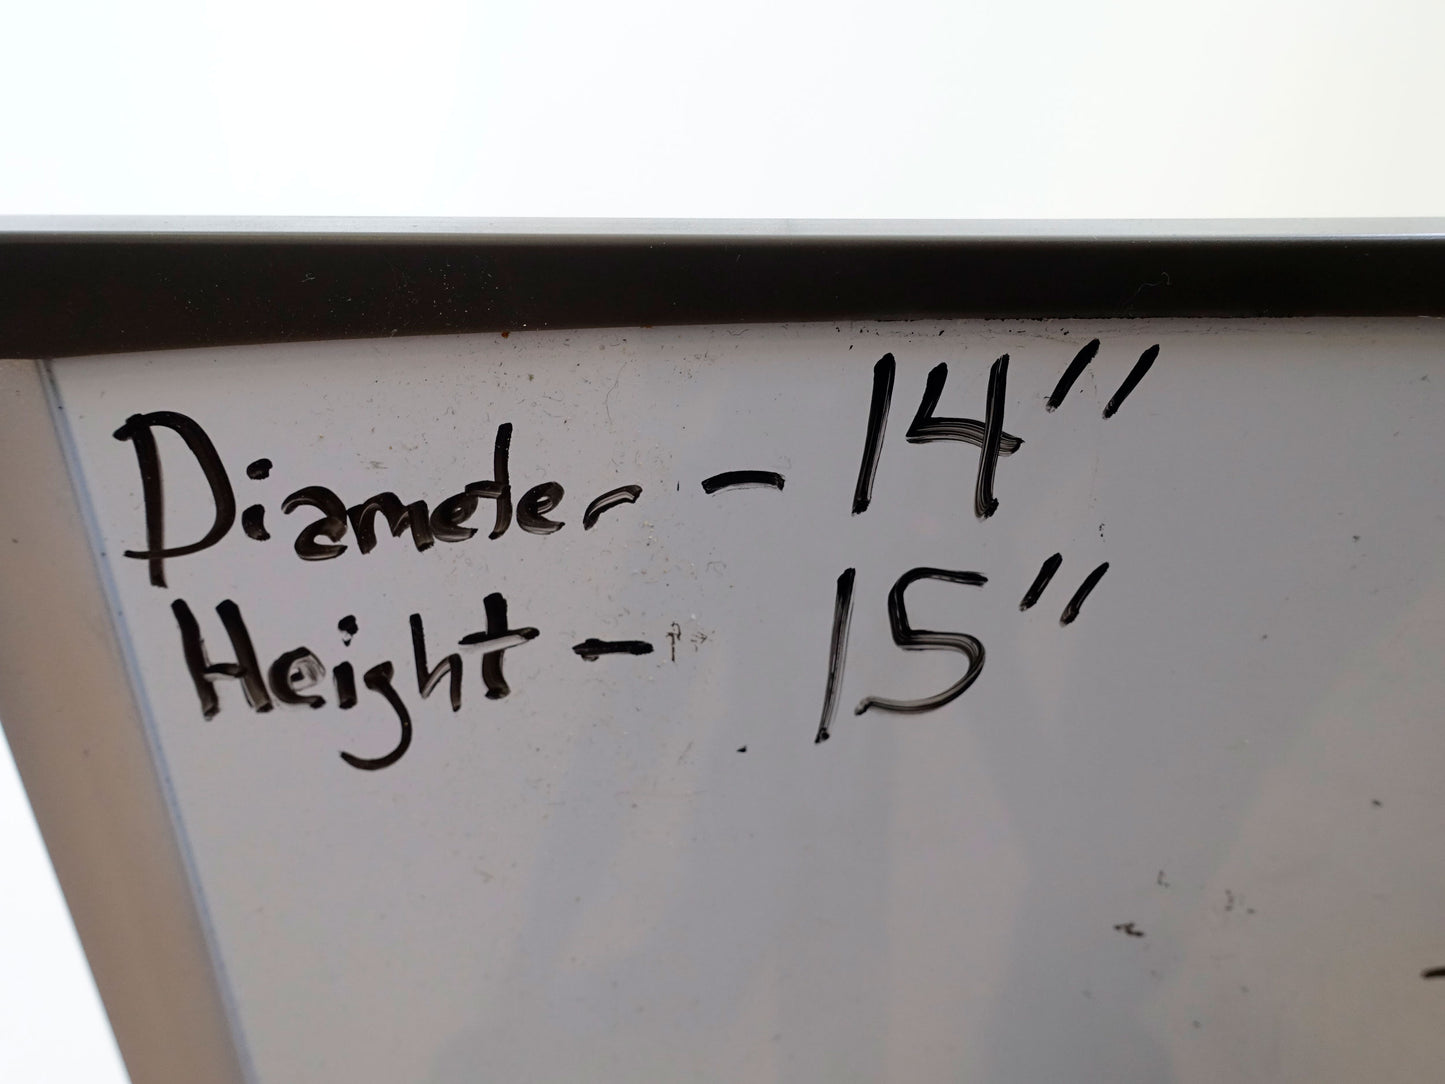 Diameter - 14"
Height - 15"